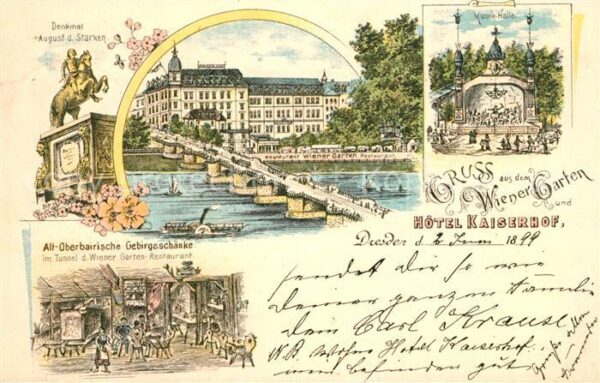 Denkmal
August d. Starken
Musik-Halle.
KAISERHOF
Restaurant Wiener Garten Restaurant
GRUSS aus dem
Wiener Garten
und
HÔTEL KAISERHOF,
Dresden d. 2 Juni 1899
Alt-Oberbairische Gebirgsschänke
im Tunnel d. Wiener Garten-Restaurant.
sendet dir so wie
deiner ganzen Familie
Dein Carl Krause
N.B. wohne Hotel Kaiserhof.
mein befinden gut
Grüße allen